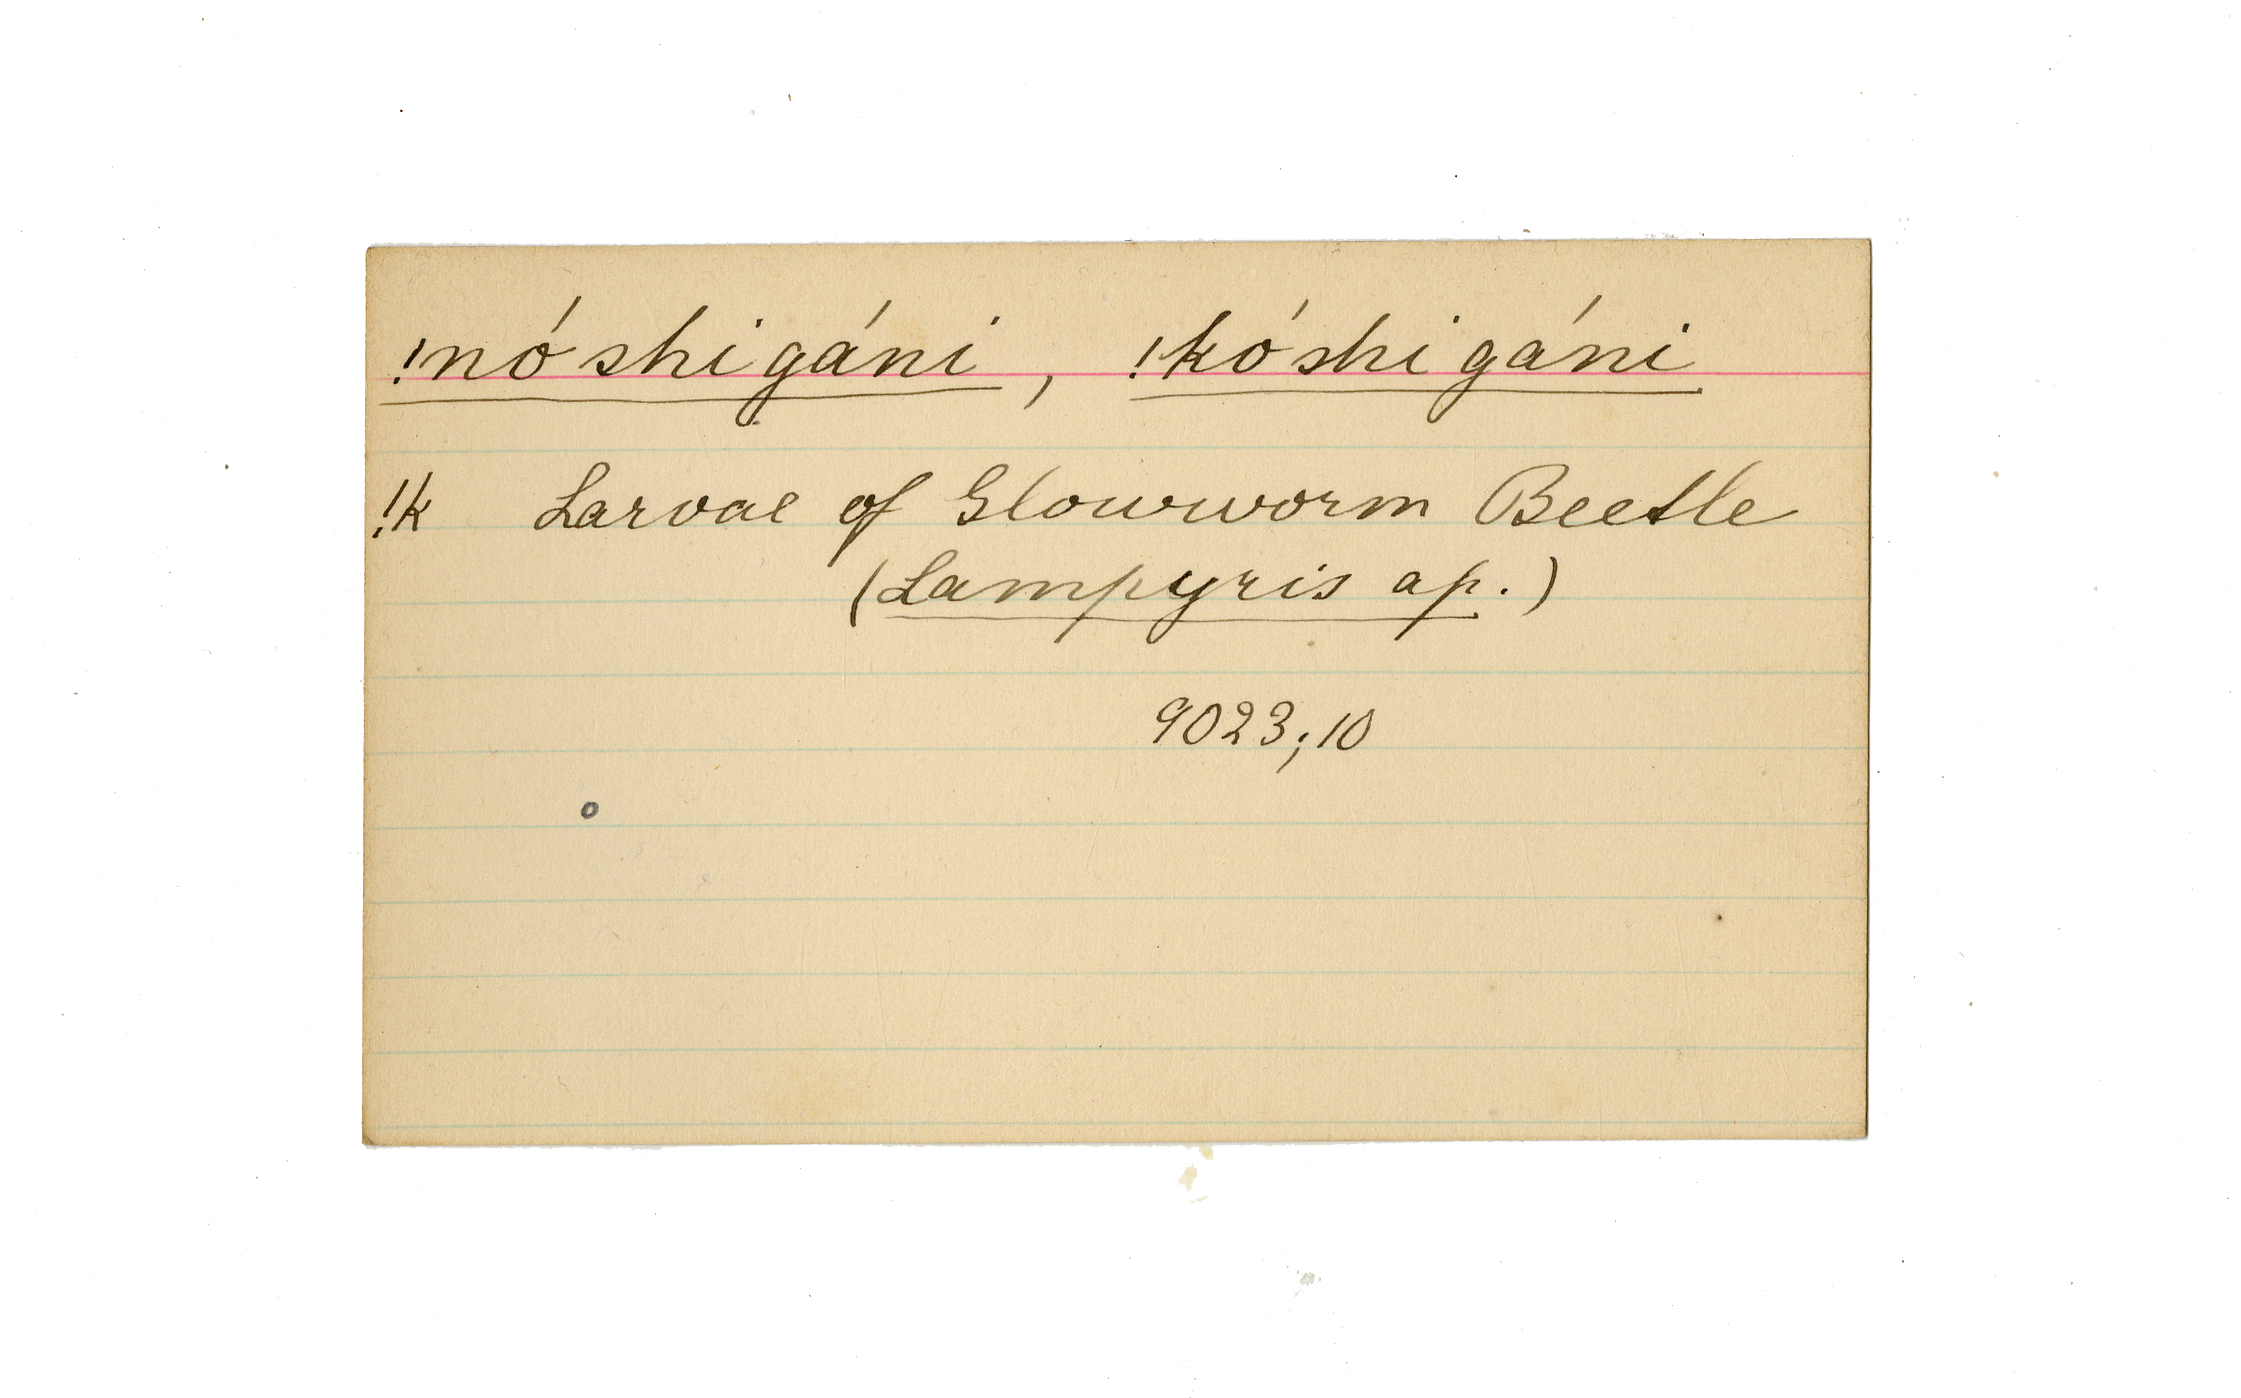 !nó shi gáni, !kó shi gáni
!k Larvae of Glowworm Beetle
(Lampyris sp.)
9023;10